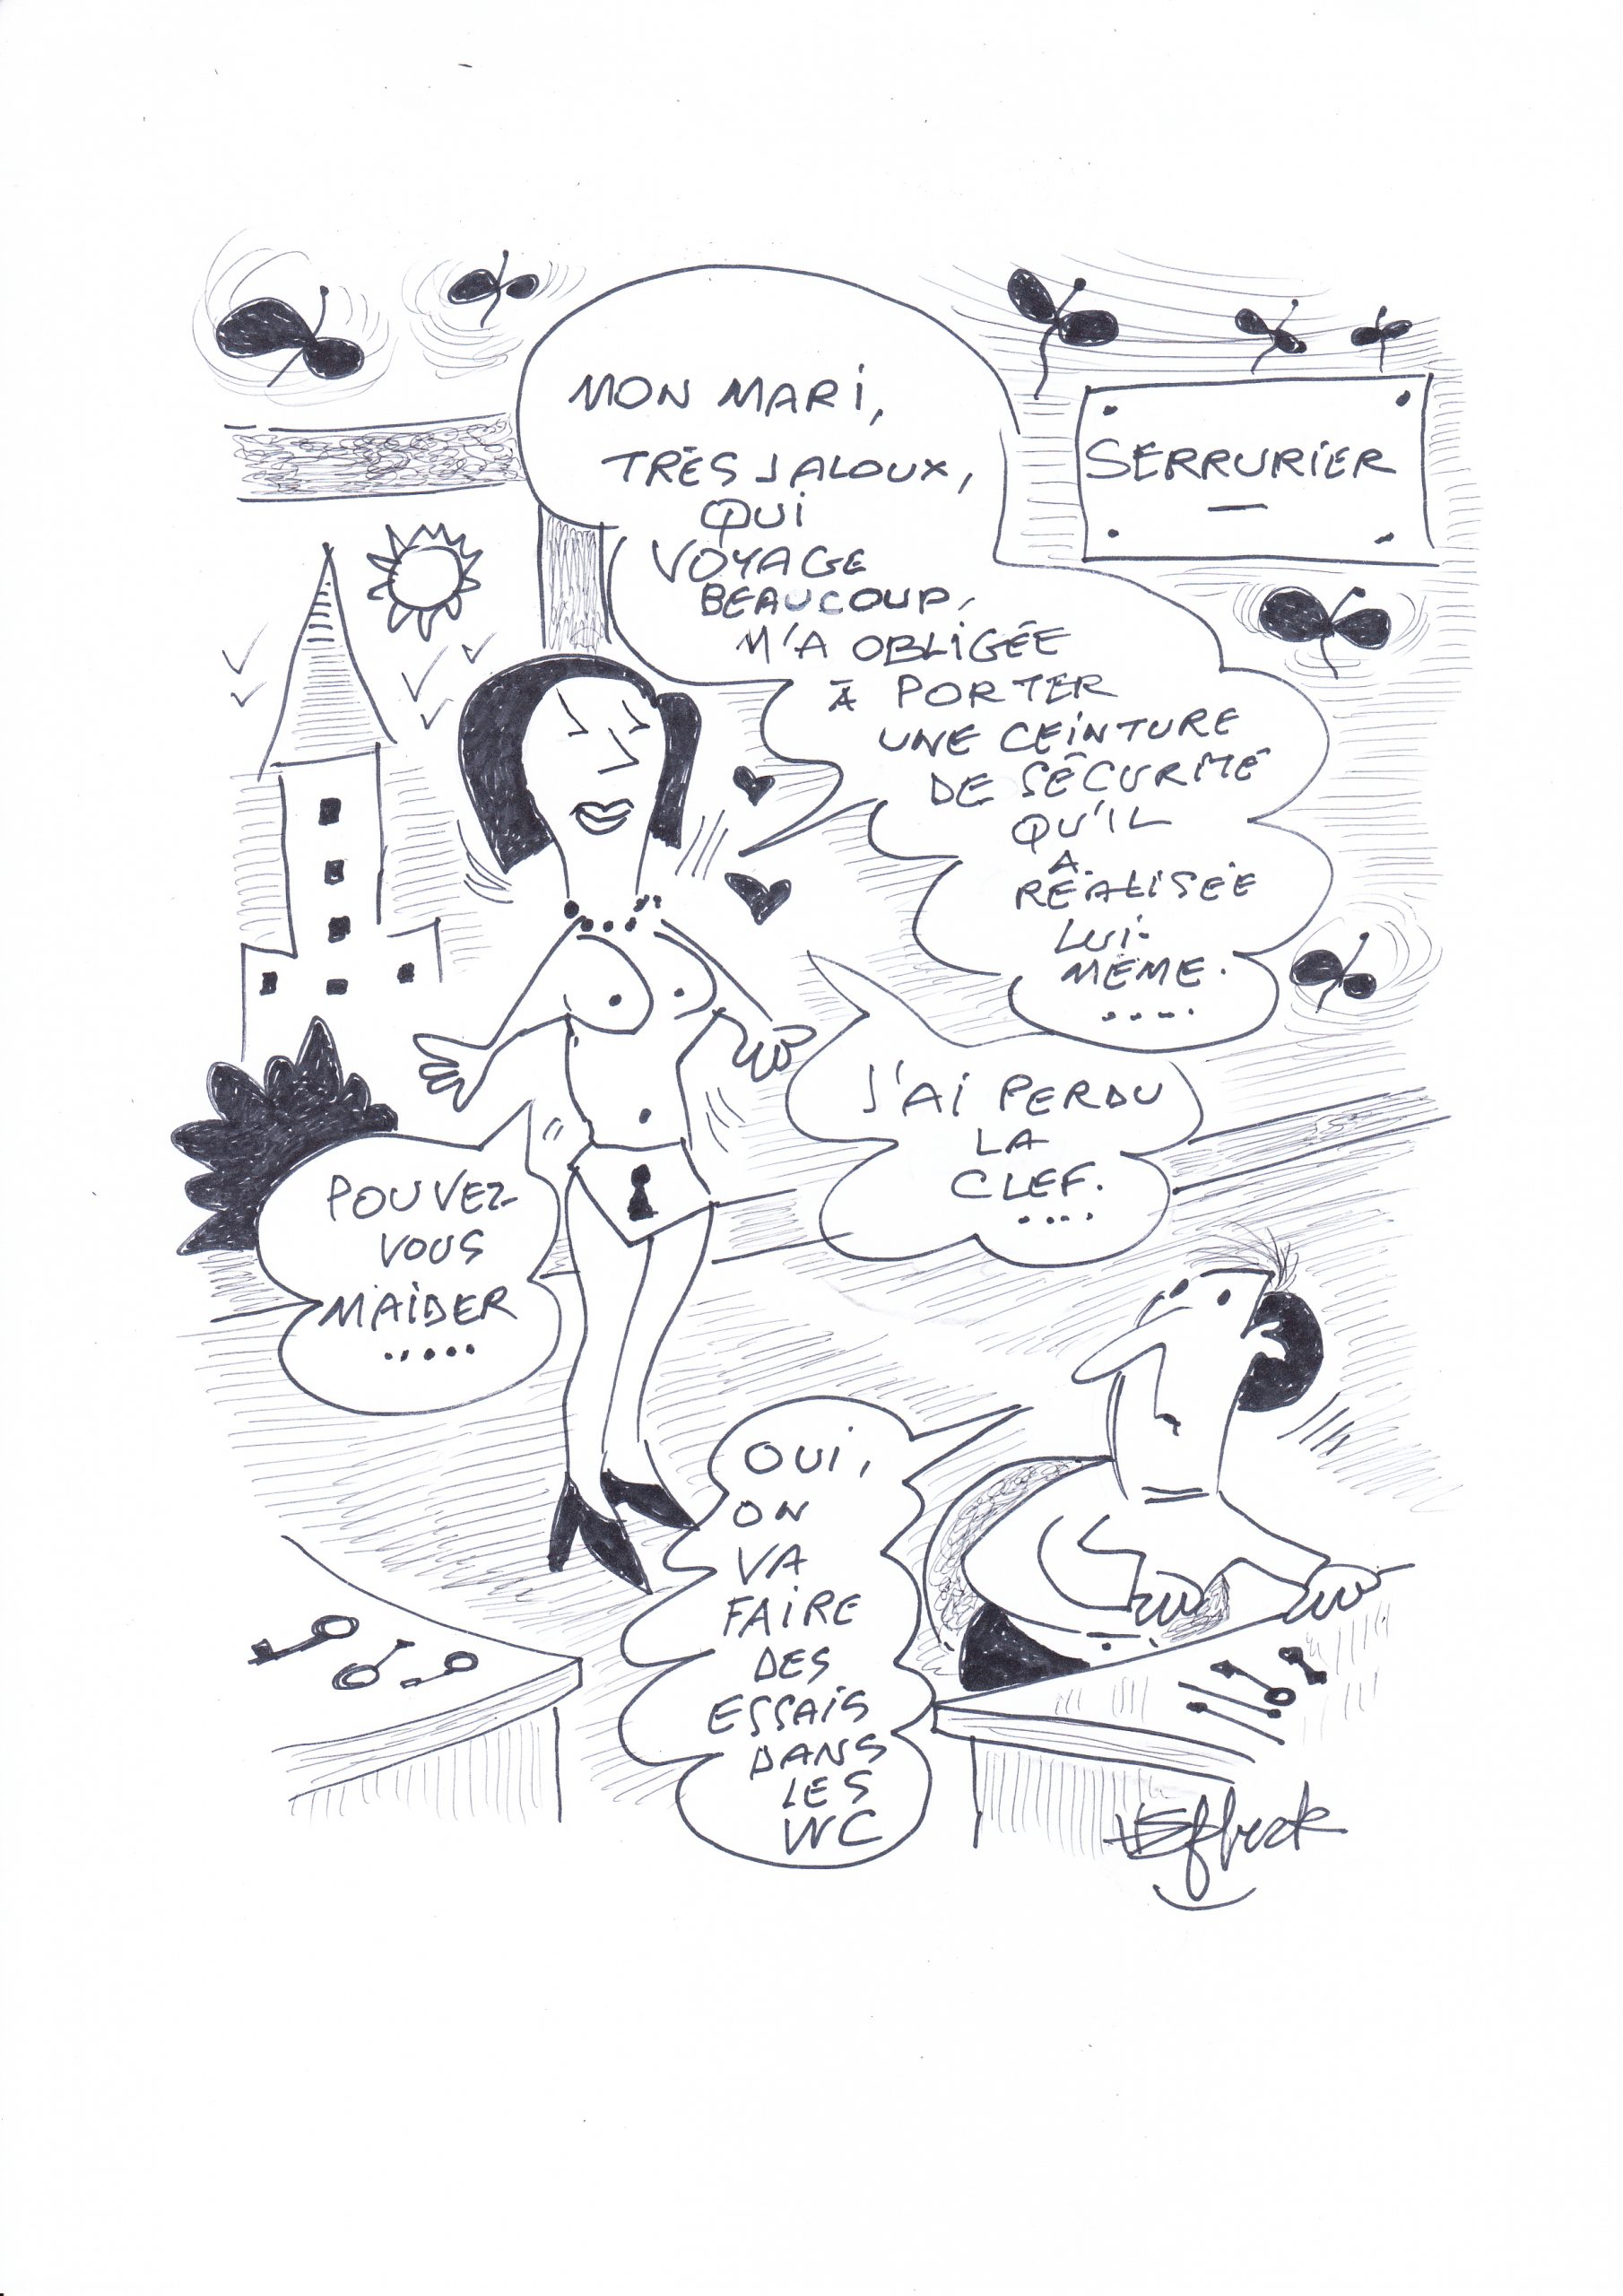 MON MARI,
TRÈS JALOUX,
QUI
VOYAGE
BEAUCOUP,
M'A OBLIGÉE
À PORTER
UNE CEINTURE
DE SÉCURITÉ
QU'IL
A
RÉALISÉE
LUI-
MÊME.
....
SERRURIER
J'AI PERDU
LA
CLEF.
....
POUVEZ-
VOUS
M'AIDER
.....
OUI,
ON
VA
FAIRE
DES
ESSAIS
DANS
LES
WC